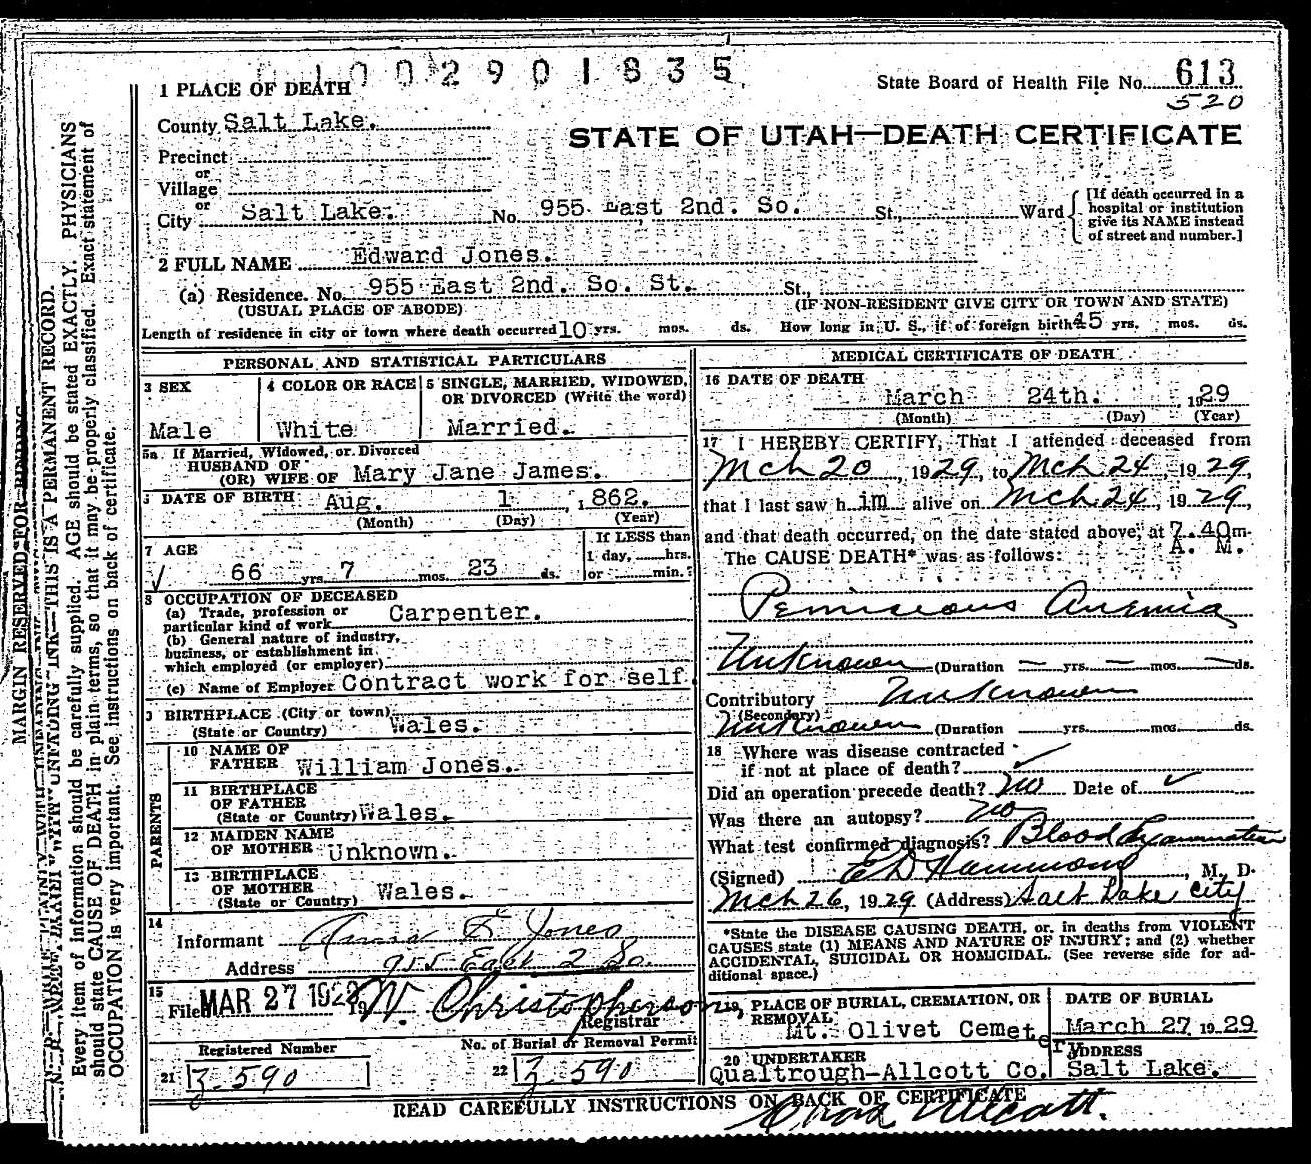 1002901835
State Board of Health File No. 613
520
1 PLACE OF DEATH
County Salt Lake.
STATE OF UTAH—DEATH CERTIFICATE
Precinct
or
Village
or
City Salt Lake. No. 955 East 2nd. So. St., Ward
[If death occurred in a hospital or institution give its NAME instead of street and number.]
2 FULL NAME Edward Jones.
(a) Residence. No. 955 East 2nd. So. St. St.,
(USUAL PLACE OF ABODE) (IF NON-RESIDENT GIVE CITY OR TOWN AND STATE)
Length of residence in city or town where death occurred 10 yrs. mos. ds. How long in U. S., if of foreign birth 45 yrs. mos. ds.
PERSONAL AND STATISTICAL PARTICULARS
3 SEX
Male
4 COLOR OR RACE
White
5 SINGLE, MARRIED, WIDOWED, OR DIVORCED (Write the word)
Married.
5a If Married, Widowed, or Divorced
HUSBAND OF
(OR) WIFE OF Mary Jane James.
DATE OF BIRTH Aug. 1, 1862.
(Month) (Day) (Year)
7 AGE
66 yrs. 7 mos. 23 ds.
If LESS than
1 day, hrs.
or min.
8 OCCUPATION OF DECEASED
(a) Trade, profession or
particular kind of work Carpenter.
(b) General nature of industry,
business, or establishment in
which employed (or employer)
(c) Name of Employer Contract work for self.
BIRTHPLACE (City or town)
(State or Country) Wales.
PARENTS
10 NAME OF
FATHER William Jones.
11 BIRTHPLACE
OF FATHER
(State or Country) Wales.
12 MAIDEN NAME
OF MOTHER Unknown.
13 BIRTHPLACE
OF MOTHER
(State or Country) Wales.
14
Informant Anna E Jones
Address 955 East 2 So.
15
Filed MAR 27 1929 W. Christopherson
Registrar
Registered Number
21 Z 590
No. of Burial or Removal Permit
22 Z 590
MEDICAL CERTIFICATE OF DEATH
16 DATE OF DEATH
March 24th. 1929
(Month) (Day) (Year)
17 I HEREBY CERTIFY, That I attended deceased from
Mch 20, 1929, to Mch 24, 1929,
that I last saw him alive on Mch 24, 1929,
and that death occurred, on the date stated above, at 7.40m.
A. M.
The CAUSE DEATH* was as follows:
Pernicious Anemia
Unknown (Duration — yrs. — mos. — ds.
Contributory Unknown
(Secondary)
Unknown (Duration yrs. mos. ds.
18 Where was disease contracted
if not at place of death?
Did an operation precede death? No Date of
Was there an autopsy? No
What test confirmed diagnosis? Blood Examination
(Signed) E D Hammond, M. D.
Mch 26, 1929 (Address) Salt Lake City
*State the DISEASE CAUSING DEATH, or, in deaths from VIOLENT
CAUSES state (1) MEANS AND NATURE OF INJURY; and (2) whether
ACCIDENTAL, SUICIDAL OR HOMICIDAL. (See reverse side for ad-
ditional space.)
19 PLACE OF BURIAL, CREMATION, OR
REMOVAL
Mt. Olivet Cemetery
DATE OF BURIAL
March 27 1929
20 UNDERTAKER
Qualtrough-Allcott Co.
ADDRESS
Salt Lake.
READ CAREFULLY INSTRUCTIONS ON BACK OF CERTIFICATE
MARGIN RESERVED FOR BINDING
Every item of information should be carefully supplied. AGE should be stated EXACTLY. PHYSICIANS
should state CAUSE OF DEATH in plain terms, so that it may be properly classified. Exact statement of
OCCUPATION is very important. See instructions on back of certificate.